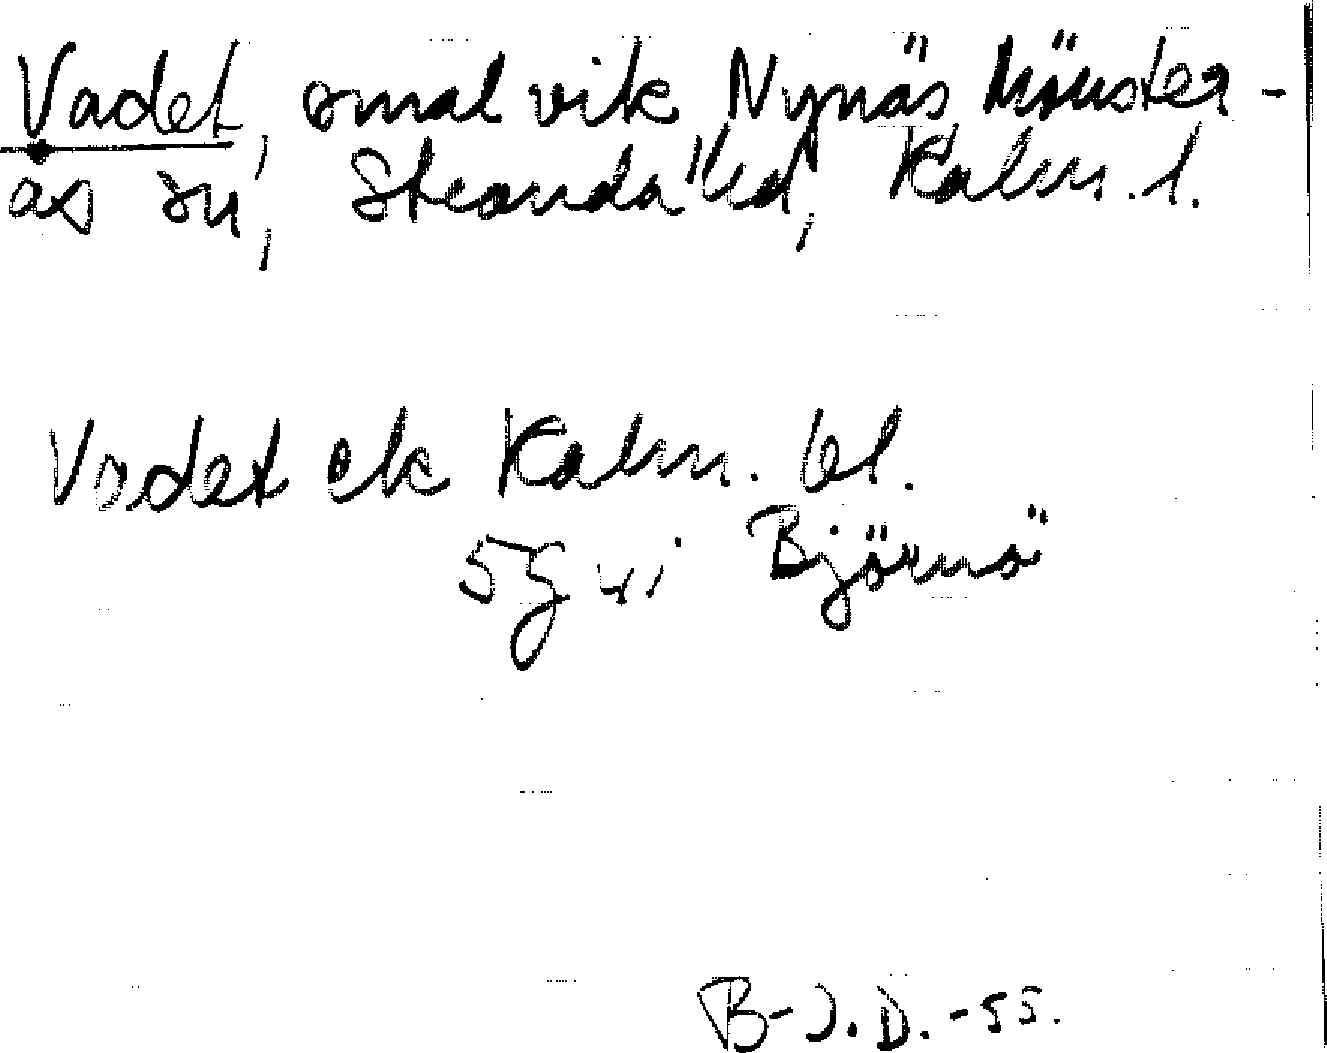 Vadet, smal vik, Nynäs Mönster-
ås sn, Stranda hd, Kalm. l.
Vadet ek Kalm. bl.
5 g vi Björnö
B-J.D.-55.